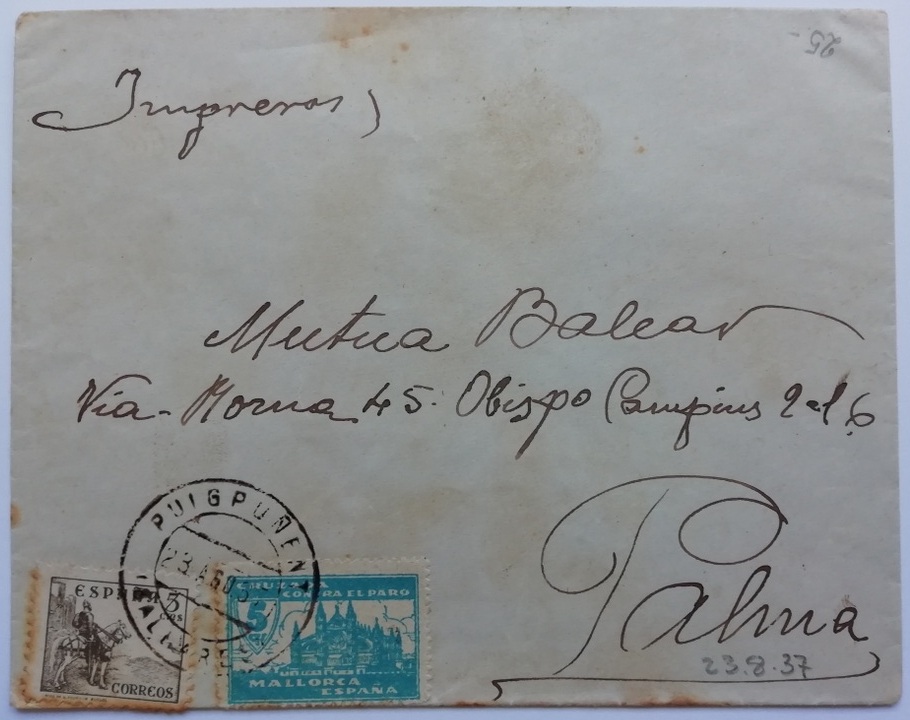 25-
Impresos
Mutua Balear
Via-Roma 45. Obispo Campins 2 al 6
PUIGPUÑENT
23 AGO 37
BALEARES
ESPAÑA
5 CTS
CORREOS
CRUZADA
CONTRA EL PARO
5
MALLORCA
ESPAÑA
Palma
23.8.37